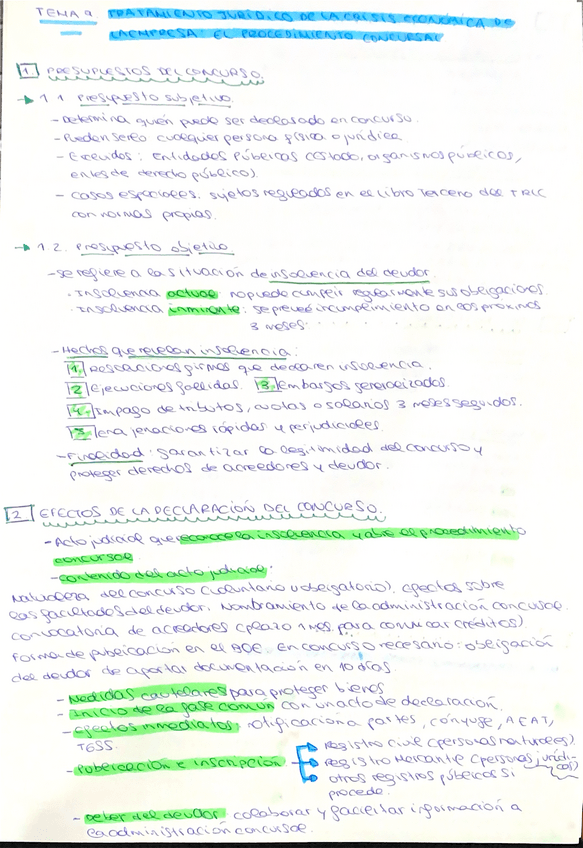 TEMA 9 TRATAMIENTO JURÍDICO DE LA CRISIS ECONÓMICA DE
LA EMPRESA EL PROCEDIMIENTO CONCURSAL
1 PRESUPUESTOS DEL CONCURSO.
→ 1 1 Presupuesto subjetivo.
- Determina quién puede ser declarado en concurso.
- Pueden serlo cualquier persona física o jurídica
- Excluidos: Entidades Públicas (estado, organismos públicos,
entes de derecho público).
- Casos especiales. sujetos regulados en el Libro Tercero del TRLC
con normas propias.
→ 1 2. Presupuesto objetivo
- se refiere a la situación de insolvencia del deudor.
· Insolvencia actual no puede cumplir regularmente sus obligaciones.
· Insolvencia inminente: se prevee incumplimiento en los próximos
3 meses.
- Hechos que revelan insolvencia:
1. Declaraciones firmes que declaren insolvencia.
2 Ejecuciones fallidas. 3. Embargos generalizados.
4. Impago de tributos, cuotas o salarios 3 meses seguidos.
5 Enajenaciones rápidas y perjudiciales
- Finalidad: Garantizar la legitimidad del concurso y
proteger derechos de acreedores y deudor.
2 EFECTOS DE LA DECLARACIÓN DEL CONCURSO.
- Acto judicial que reconoce la insolvencia y abre el procedimiento
concursal
- contenido del acto judicial:
Naturaleza del concurso (voluntario u obligatorio). efectos sobre
las facultades del deudor. Nombramiento de la administración concursal.
convocatoria de acreedores (plazo 1 mes para comunicar créditos)
Forma de publicación en el BOE. En concurso necesario: obligación
del deudor de aportar documentación en 10 días.
- Medidas cautelares para proteger bienes
- Inicio de la fase común con un acto de declaración.
- efectos inmediatos: notificación a partes, cónyuge, AEAT,
TGSS.
- Publicación e inscripción → Registro civil (personas naturales).
→ Registro Mercantil (personas jurídi-
cas)
→ otros registros públicos si
procede.
- Deber del deudor colaborar y facilitar información a
la administración concursal.